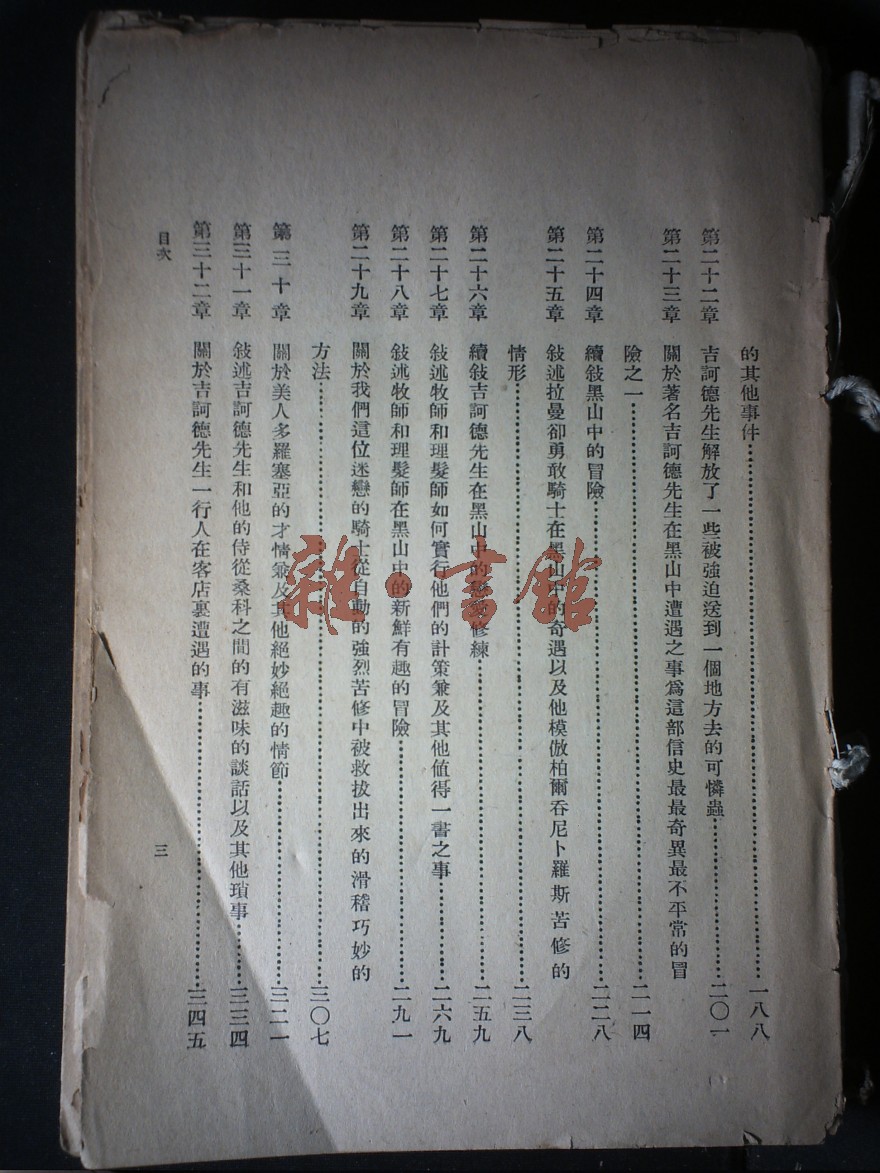 的其他事件……一八八
第二十二章　吉訶德先生解放了一些被強迫送到一個地方去的可憐蟲……二〇一
第二十三章　關於著名吉訶德先生在黑山中遭遇之事爲這部信史最最奇異最不平常的冒
險之一……二一四
第二十四章　續敍黑山中的冒險……二二八
第二十五章　敍述拉曼卻勇敢騎士在黑山中的奇遇以及他模倣柏爾吞尼卜羅斯苦修的
情形……二三八
第二十六章　續敍吉訶德先生在黑山中的修練……二五九
第二十七章　敍述牧師和理髮師如何實行他們的計策兼及其他値得一書之事……二六九
第二十八章　敍述牧師和理髮師在黑山中的新鮮有趣的冒險……二九一
第二十九章　關於我們這位迷戀的騎士從自動的強烈苦修中被救拔出來的滑稽巧妙的
方法……三〇七
第三十章　關於美人多羅塞亞的才情兼及其他絕妙絕趣的情節……三二一
第三十一章　敍述吉訶德先生和他的侍從桑科之間的有滋味的談話以及其他瑣事……三三四
第三十二章　關於吉訶德先生一行人在客店裏遭遇的事……三四五
目次
三
雜·書館